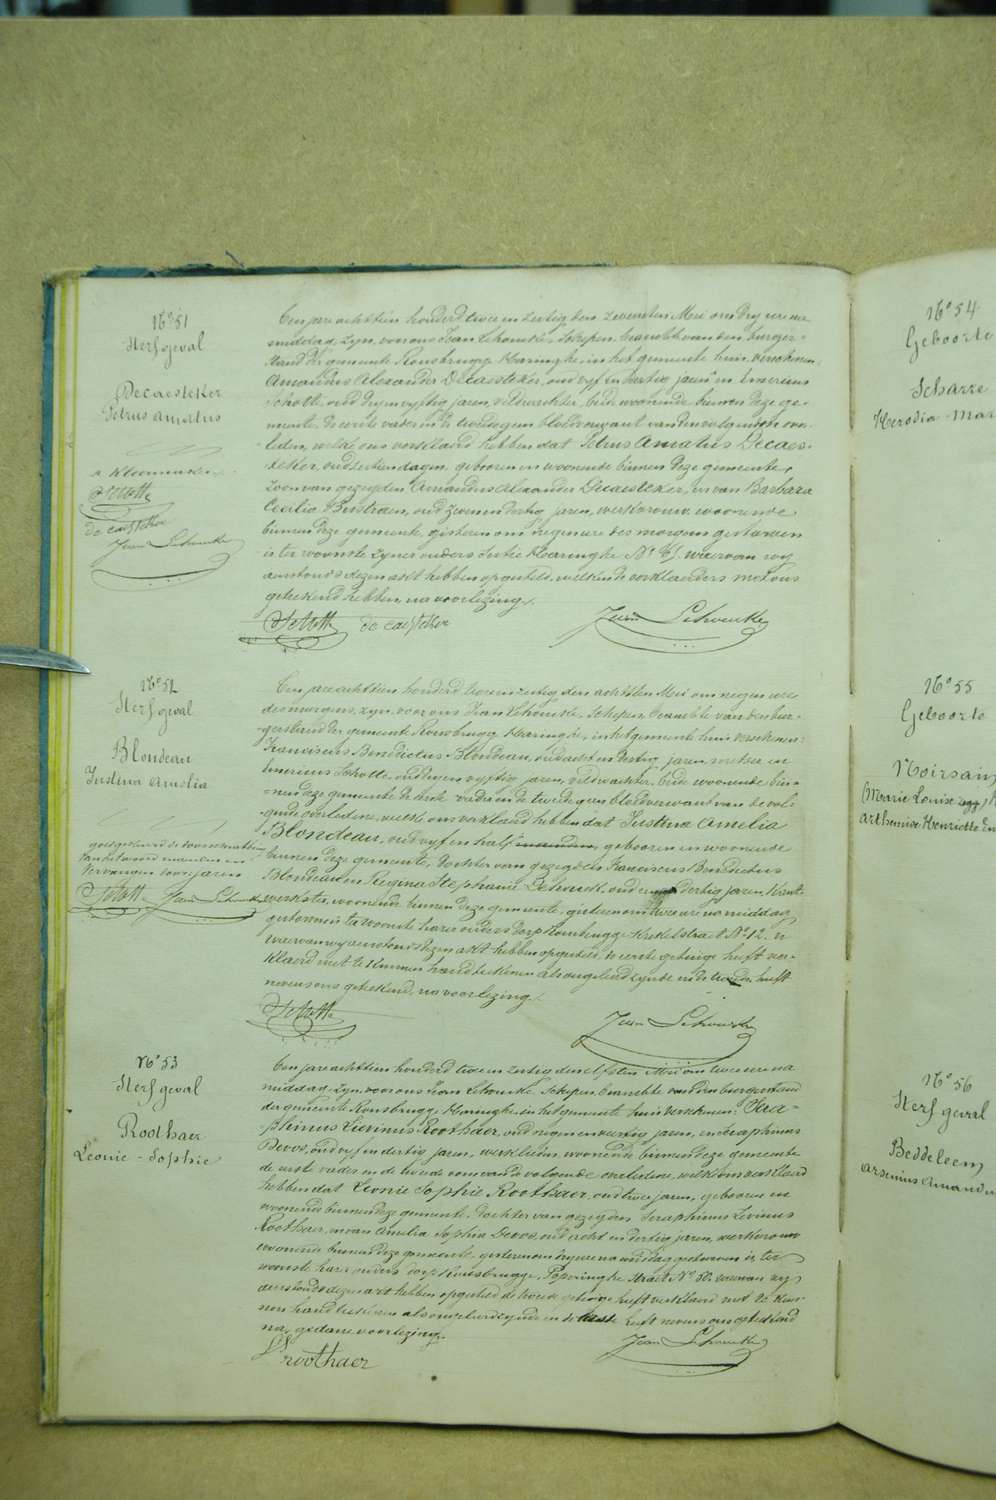 N° 51
Sterfgeval
Decaesteker
Petrus Amatus
Schotte
de caesteker
Jean Schoucke
Een jaar achttien honderd twee en zestig den zevensten Mei om dry uren na
middag, zyn voor ons Jean Schoucke, Schepen, beambte van den burger-
stand der gemeente Rousbrugge Haringhe in het gemeente huis verschenen
Amandus Alexander Decaesteker, oud vyf en dertig jaren en Emericus
Schotte, oud dry en vyftig jaren, veldwachter, beide woonende binnen deze ge-
meente. De eerste vader en de tweede gen bloedverwant van den volgenden over-
leden, welke ons verklaard hebben dat Petrus Amatus Decaes-
teker, oud zestien dagen, geboren en woonende binnen deze gemeente,
zoon van gezegden Amandus Alexander Decaesteker, en van Barbara
Cecilia Besstraen, oud zeven en dertig jaren, werkvrouw, woonende
binnen deze gemeente, gisteren om negen ure des morgens gestorven
is ter woonste zyner ouders sectie Haringhe N° waarvan wy
aanstonds dezen akt hebben opgesteld, welken de verklaarders met ons
geteekend hebben, na voorlezing.
Schotte de caesteker Jean Schoucke
N° 52
Sterfgeval
Blondeau
Justina Amelia
goedgekeurd de doorschrabbing
van het woord maanden en
vervangen door jaren
Schotte Jean Schoucke
Een jaar achttien honderd twee en zestig den achtsten Mei om negen ure
des morgens, zyn voor ons Jean Schoucke, Schepen, beambte van den bur-
gerstand der gemeente Rousbrugge Haringhe, in het gemeente huis verschenen:
Franciscus Benedictus Blondeau, oud acht en dertig jaren, metser en
Emericus Schotte, oud dry en vyftig jaren, veldwachter, beide woonende bin-
nen deze gemeente de eerste vader en de tweede gen bloedverwant van de vol-
gende overledene, welke ons verklaard hebben dat Justina Amelia
Blondeau, oud vyf en half maanden, geboren en woonende
binnen deze gemeente, dochter van gezegden Franciscus Benedictus
Blondeau en Regina Stephanie Dehouck, oud dertig jaren, kant-
werkster, woonende binnen deze gemeente, gisteren om twee ure na middag
gestorven is ter woonste harer ouders dorp Rousbrugge Krekelstraet N° 12.
waarvan wy aanstonds dezen akt hebben opgesteld, de eerste getuige heeft ver-
klaard niet te kunnen handteekenen als ongeleerd zynde en de tweede heeft
nevens ons geteekend, na voorlezing.
Schotte Jean Schoucke
N° 53
Sterfgeval
Roothaer
Leonie-Sophie
Een jaar achttien honderd twee en zestig den elfsten Mei om twee ure na
middag, zyn voor ons Jean Schoucke Schepen, beambte van den burgerstand
der gemeente Rousbrugge Haringhe in het gemeente huis verschenen: Sera-
phinus Livinus Roothaer, oud negen en veertig jaren, en Seraphinus
Devos, oud vyf en dertig jaren, werklieden, woonende binnen deze gemeente
de eerste vader en de tweede oom van de volgende overledene, welke ons verklaard
hebben dat Leonie Sophie Roothaer, oud twee jaren, geboren en
woonende binnen deze gemeente, dochter van gezegden Seraphinus Livinus
Roothaer, en van Amelia Sophia Devos, oud acht en dertig jaren, werkvrouw
woonende binnen deze gemeente, gisteren om dry ure na middag gestorven is ter
woonste harer ouders dorp Rousbrugge, Poperinghe straet N° 50. waarvan wy
aanstonds dezen akt hebben opgesteld de tweede getuige heeft verklaard niet te kun-
nen handteekenen als ongeleerd zynde en de eerste heeft nevens ons geteekend
na gedane voorlezing.
S roothaer Jean Schoucke
N° 54
Geboorte
Scharre
N° 55
Geboorte
Noirsain
(Marie Louise
arthemise Henriette
N° 56
Sterfgeval
Beddeleem
arsenius Amandus